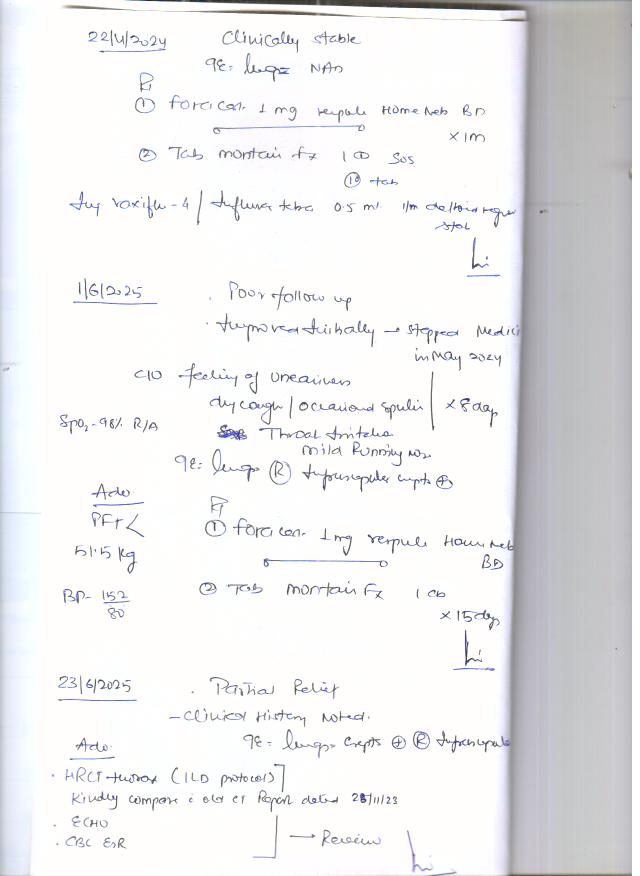 22/4/2024 Clinically stable
O/E: lungs NAD
Rx
① Foracort 1 mg respule Home Neb BD
x 1m
② Tab montair fx 1 OD SOS
⑩ tab
Inj vaxiflu-4 / 0.5 ml i/m deltoid
stat
1/6/2025 . Poor follow up
. Improved initially → stopped Medici
in May 2024
C/O feeling of uneasiness
dry cough / occasional sputum x 8 days
SpO2-98% R/A Throat irritation
mild Running nose
O/E: lungs Ⓡ Infrascapular crepts ⊕
Adv Rx
PFT ① Foracort 1mg respule Home Neb
BD
51.5 kg
BP- 152/80 ② Tab montair Fx 1 OD
x 15 days
23/6/2025 . Partial Relief
- Clinical History Noted.
O/E: lungs- crepts ⊕ Ⓡ Infrascapula
Adv.
. HRCT thorax (ILD protocols)
Kindly compare c old CT Report dated 28/11/23
. ECHO
. CBC ESR → Review